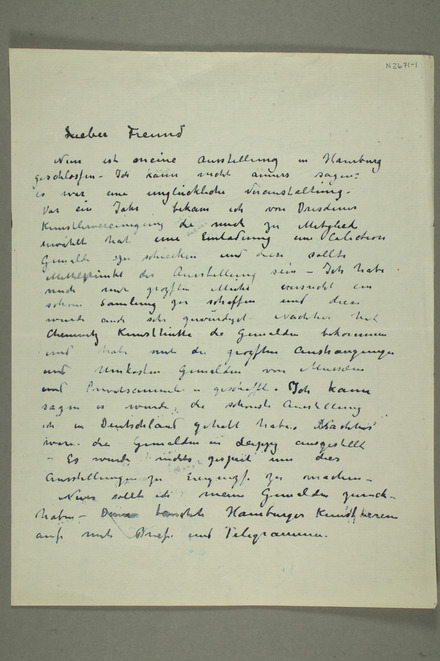 N2671-1
Lieber Freund
Nun ist meine Ausstellung in Hamburg
geschlossen - Ich kann nicht anders sagen:
es war eine unglückliche Veranstaltung.
Vor ein Jahr bekam ich von Dresdener
Kunstvereinigung die mich zu Mitglied
hat eine Einladung um Collection
Gemälde zu schicken und diese sollte
Mittelpunkt der Ausstellung sein - Ich habe
mich mit größten versucht ein
schöne Samlung zu schaffen und dies
wurde auch sehr gewürdigt - Nachher hat
Chemnitz Kunsthütte die Gemälden bekommen
und habe mit die größten
und Unkosten Gemälden von Museen
und Ich kann
sagen es wurde die schönste Ausstellung
ich in Deutschland gehabt habe. Nachher
ware die Gemälden in Leipzig ausgestellt
- Es wurde nichts gespart um dies
Ausstellungen zu zu machen -
Nun sollte ich meine Gemälden zurück
haben - Hamburger Kunst
mit Brief und Telegramme.